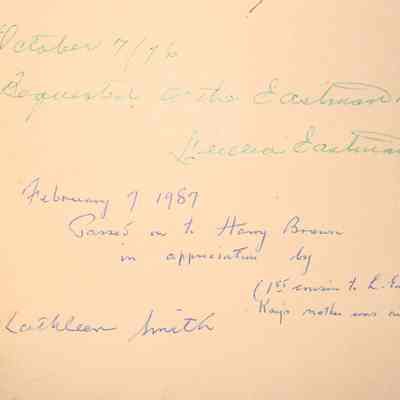 October 7/76
Bequested to the Eastman
Eastman
February 7 1987
Passed on to Harry Brown
in appreciation by
(1st cousin to L. Ea
Kay's mother was au
Kathleen Smith